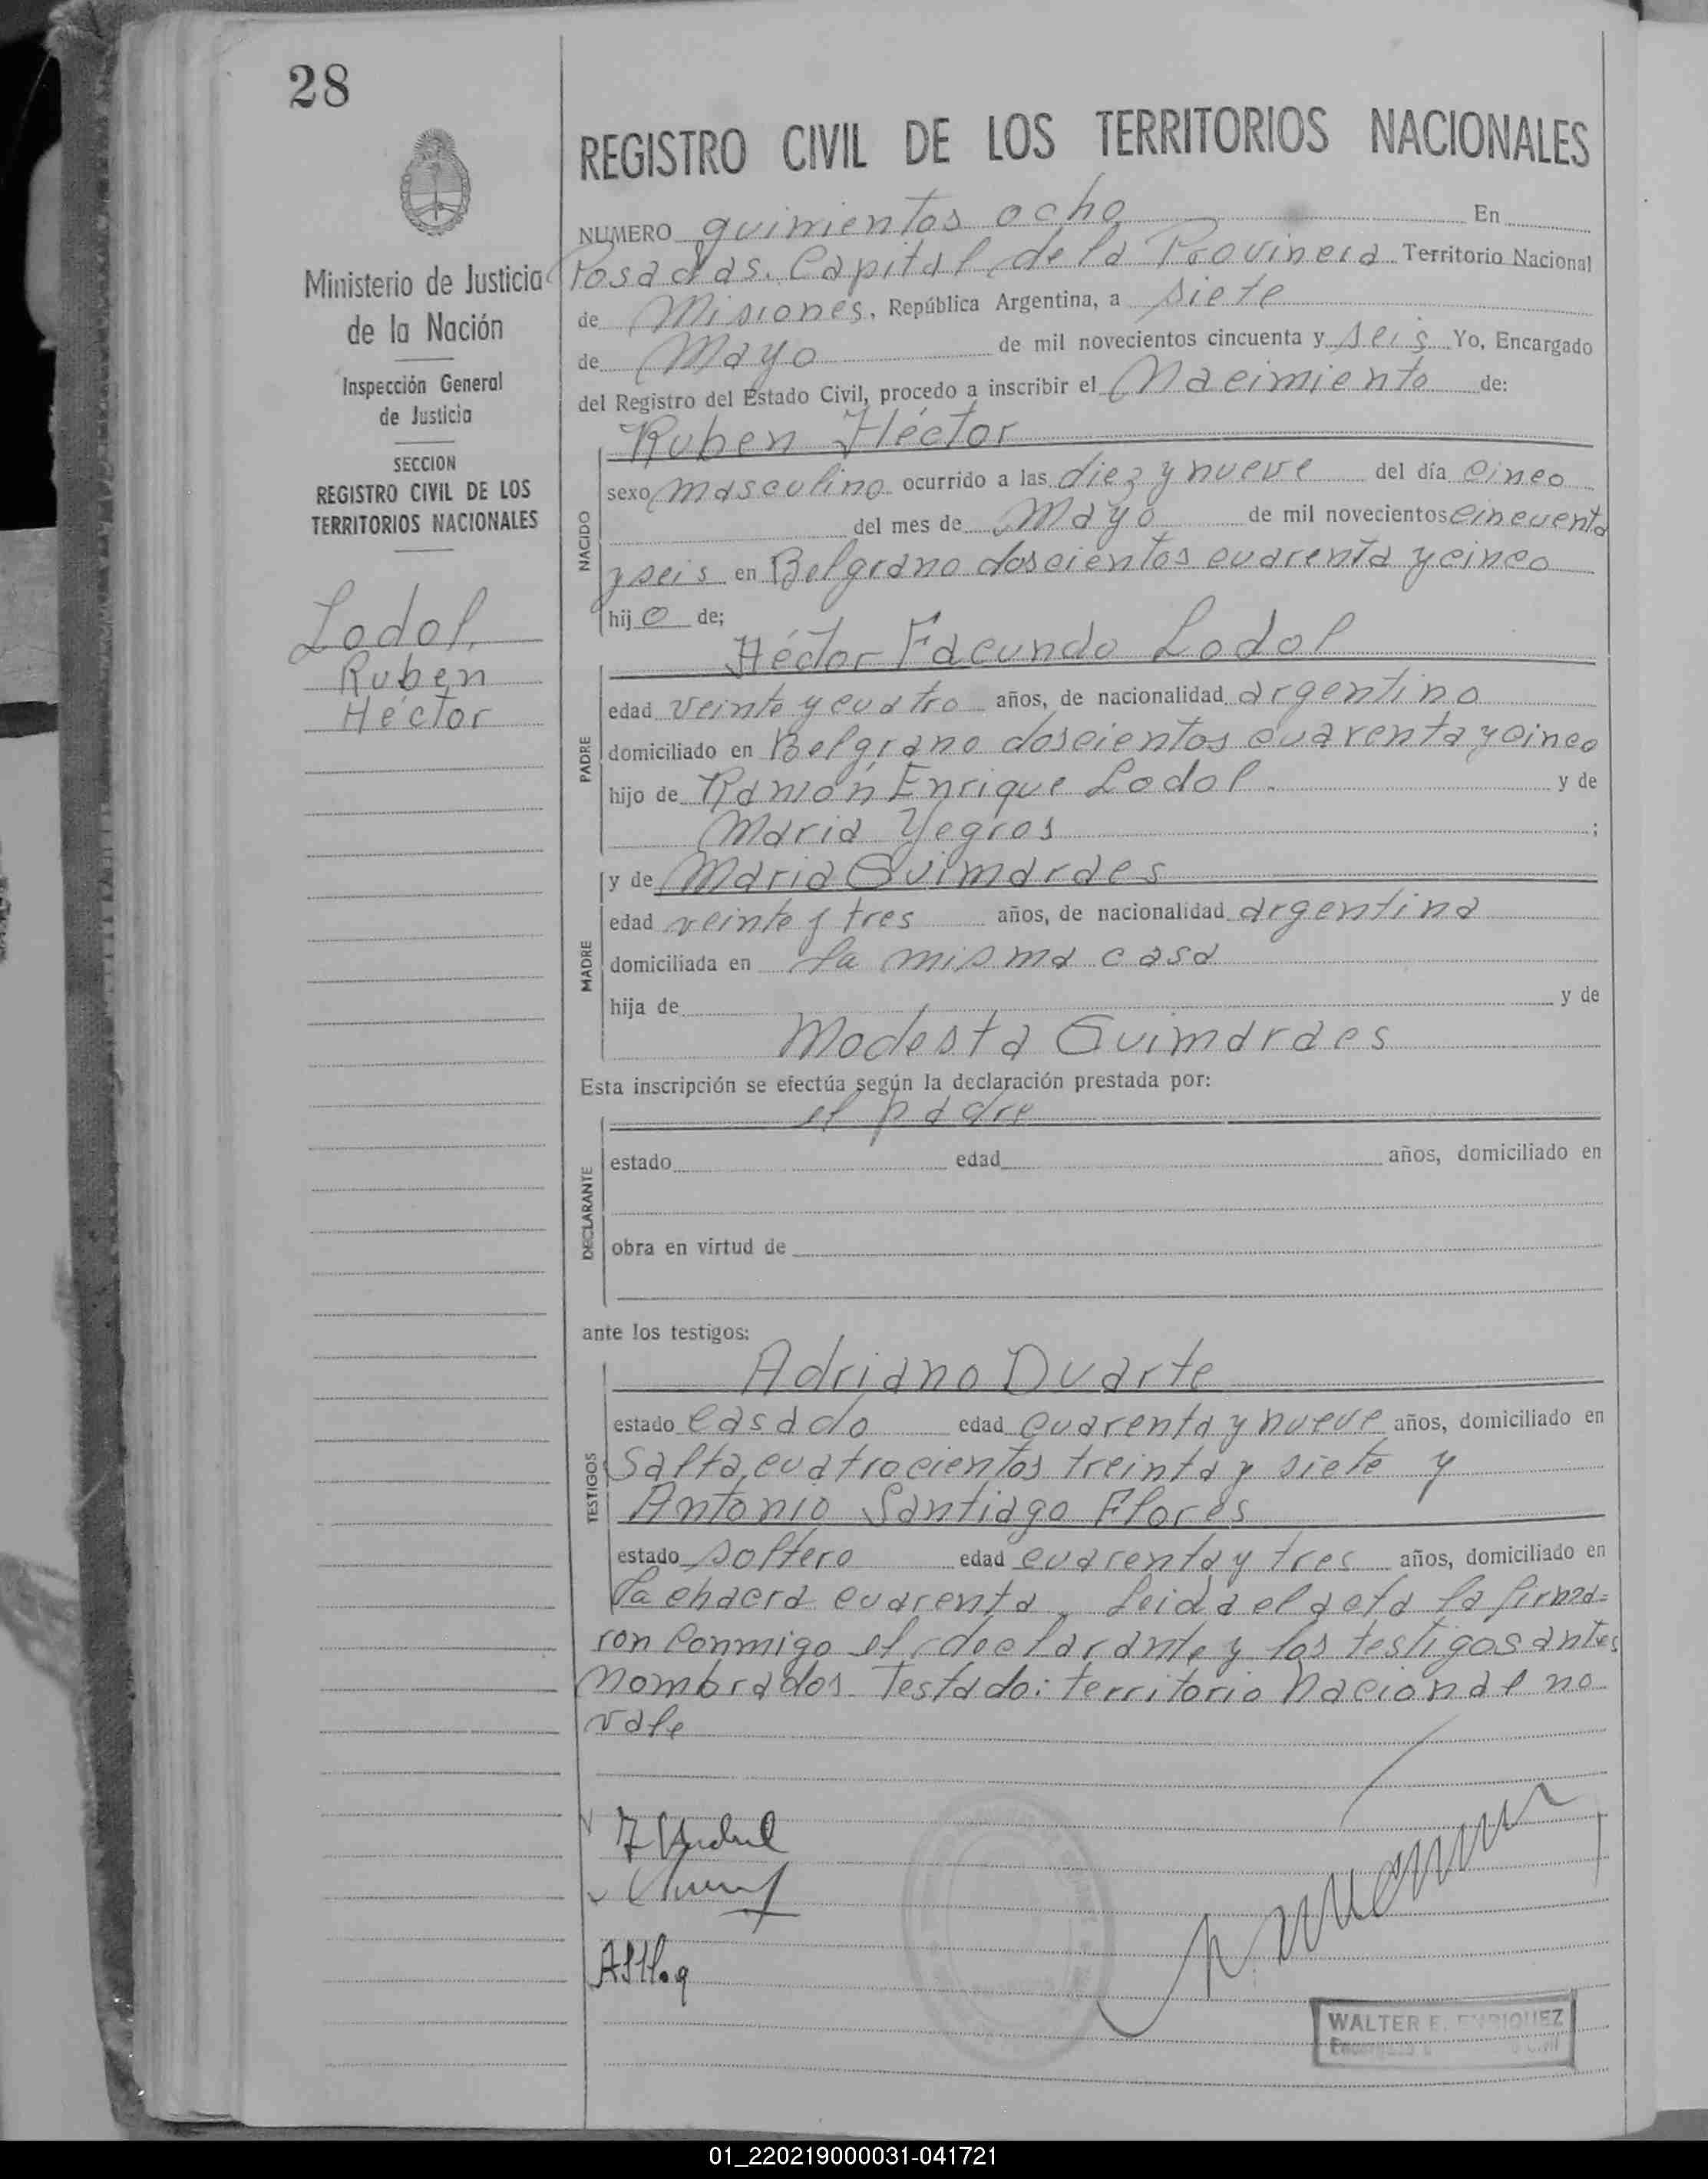 28
REGISTRO CIVIL DE LOS TERRITORIOS NACIONALES
NUMERO quinientos ocho En
Posadas. Capital de la Provincia Territorio Nacional
de Misiones, República Argentina, a siete
de Mayo de mil novecientos cincuenta y seis Yo, Encargado
del Registro del Estado Civil, procedo a inscribir el Nacimiento de:
Ruben Héctor
NACIDO
sexo masculino ocurrido a las diez y nueve del día cinco
del mes de Mayo de mil novecientos cincuenta
y seis en Belgrano doscientos cuarenta y cinco
hijo de;
Héctor Facundo Lodol
PADRE
edad veinte y cuatro años, de nacionalidad argentino
domiciliado en Belgrano doscientos cuarenta y cinco
hijo de Ramón Enrique Lodol. y de
Maria Yegros ;
y de Maria Guimaraes
MADRE
edad veinte y tres años, de nacionalidad argentina
domiciliada en la misma casa
hija de y de
Modesta Guimaraes
Esta inscripción se efectúa según la declaración prestada por:
el padre
DECLARANTE
estado edad años, domiciliado en
obra en virtud de
ante los testigos:
Adriano Duarte
TESTIGOS
estado casado edad cuarenta y nueve años, domiciliado en
Salta, cuatrocientos treinta y siete y
Antonio Santiago Flores
estado soltero edad cuarenta y tres años, domiciliado en
la chacra cuarenta. Leida el acta la firma=
ron conmigo el declarante y los testigos antes
nombrados. Testado: territorio nacional no
vale
Ministerio de Justicia
de la Nación
Inspección General
de Justicia
SECCION
REGISTRO CIVIL DE LOS
TERRITORIOS NACIONALES
Lodol,
Ruben
Héctor
WALTER E. ENRIQUEZ
01_220219000031-041721